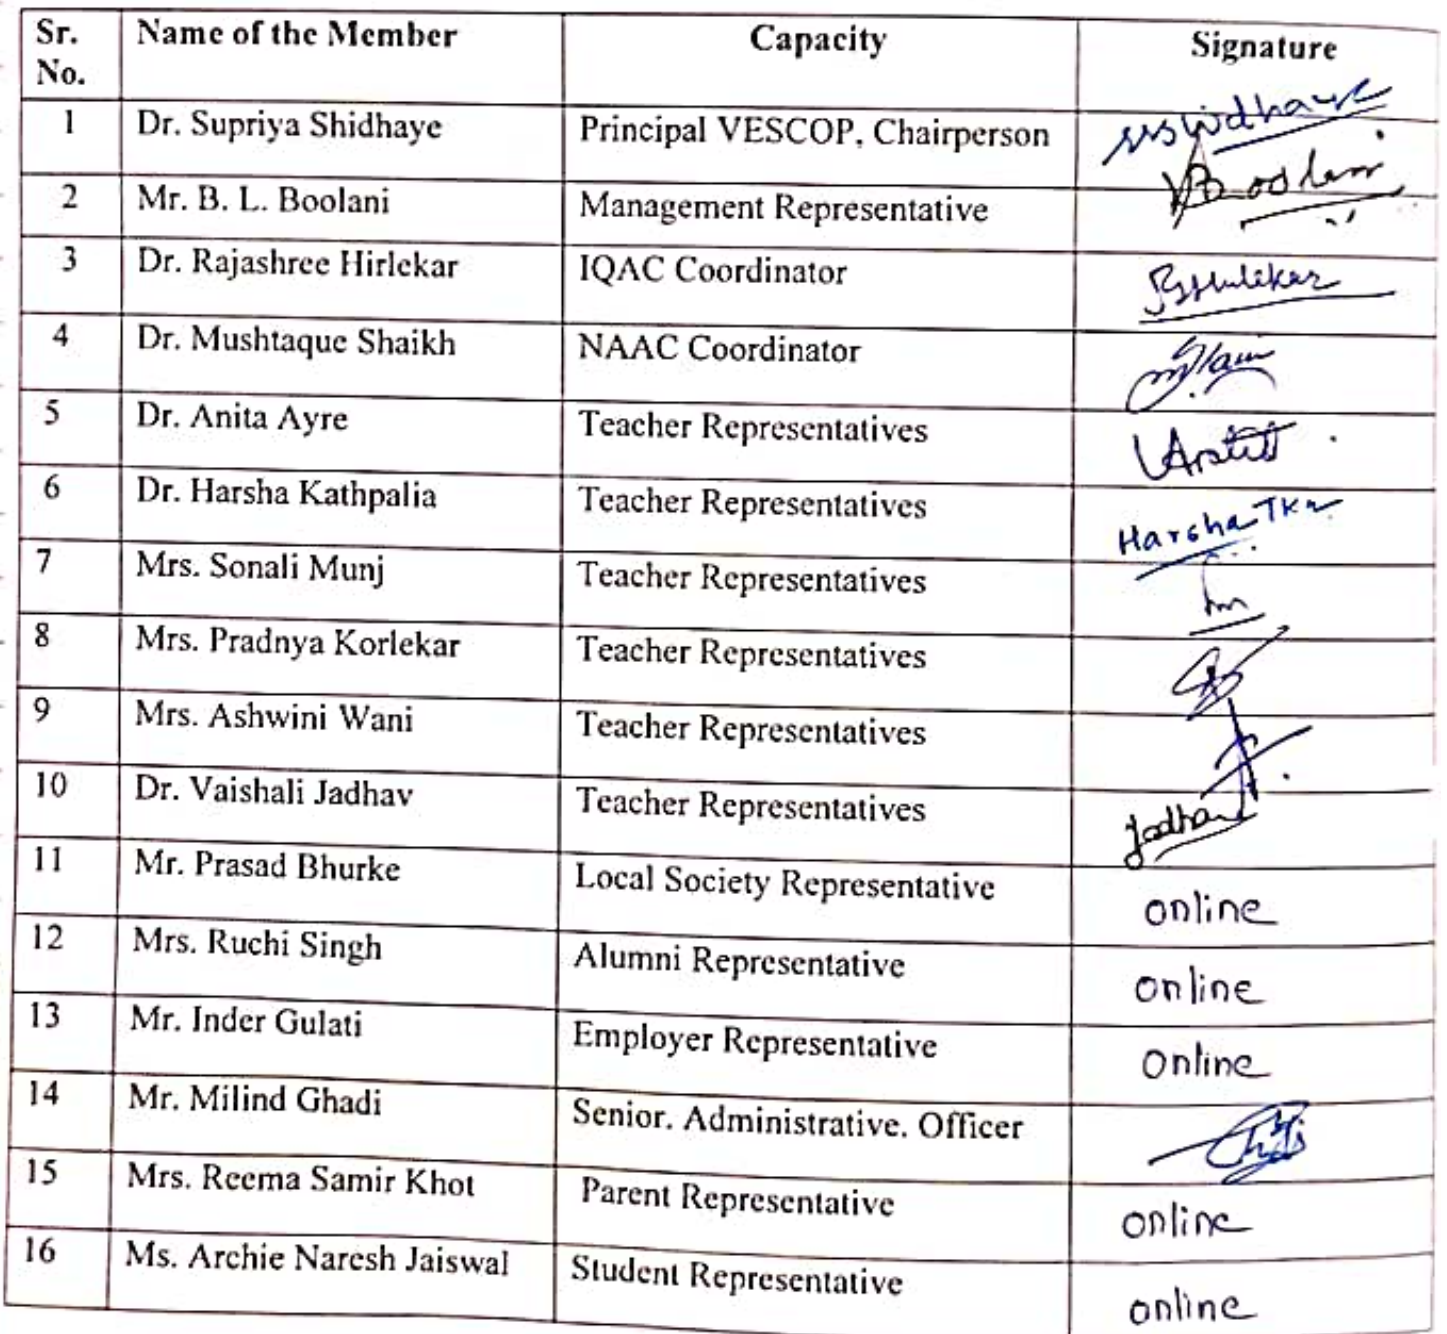 Sr. No. Name of the Member Capacity Signature
1 Dr. Supriya Shidhaye Principal VESCOP, Chairperson
2 Mr. B. L. Boolani Management Representative
3 Dr. Rajashree Hirlekar IQAC Coordinator
4 Dr. Mushtaque Shaikh NAAC Coordinator
5 Dr. Anita Ayre Teacher Representatives
6 Dr. Harsha Kathpalia Teacher Representatives Harsha
7 Mrs. Sonali Munj Teacher Representatives
8 Mrs. Pradnya Korlekar Teacher Representatives
9 Mrs. Ashwini Wani Teacher Representatives
10 Dr. Vaishali Jadhav Teacher Representatives
11 Mr. Prasad Bhurke Local Society Representative online
12 Mrs. Ruchi Singh Alumni Representative online
13 Mr. Inder Gulati Employer Representative online
14 Mr. Milind Ghadi Senior. Administrative. Officer
15 Mrs. Reema Samir Khot Parent Representative online
16 Ms. Archie Naresh Jaiswal Student Representative online